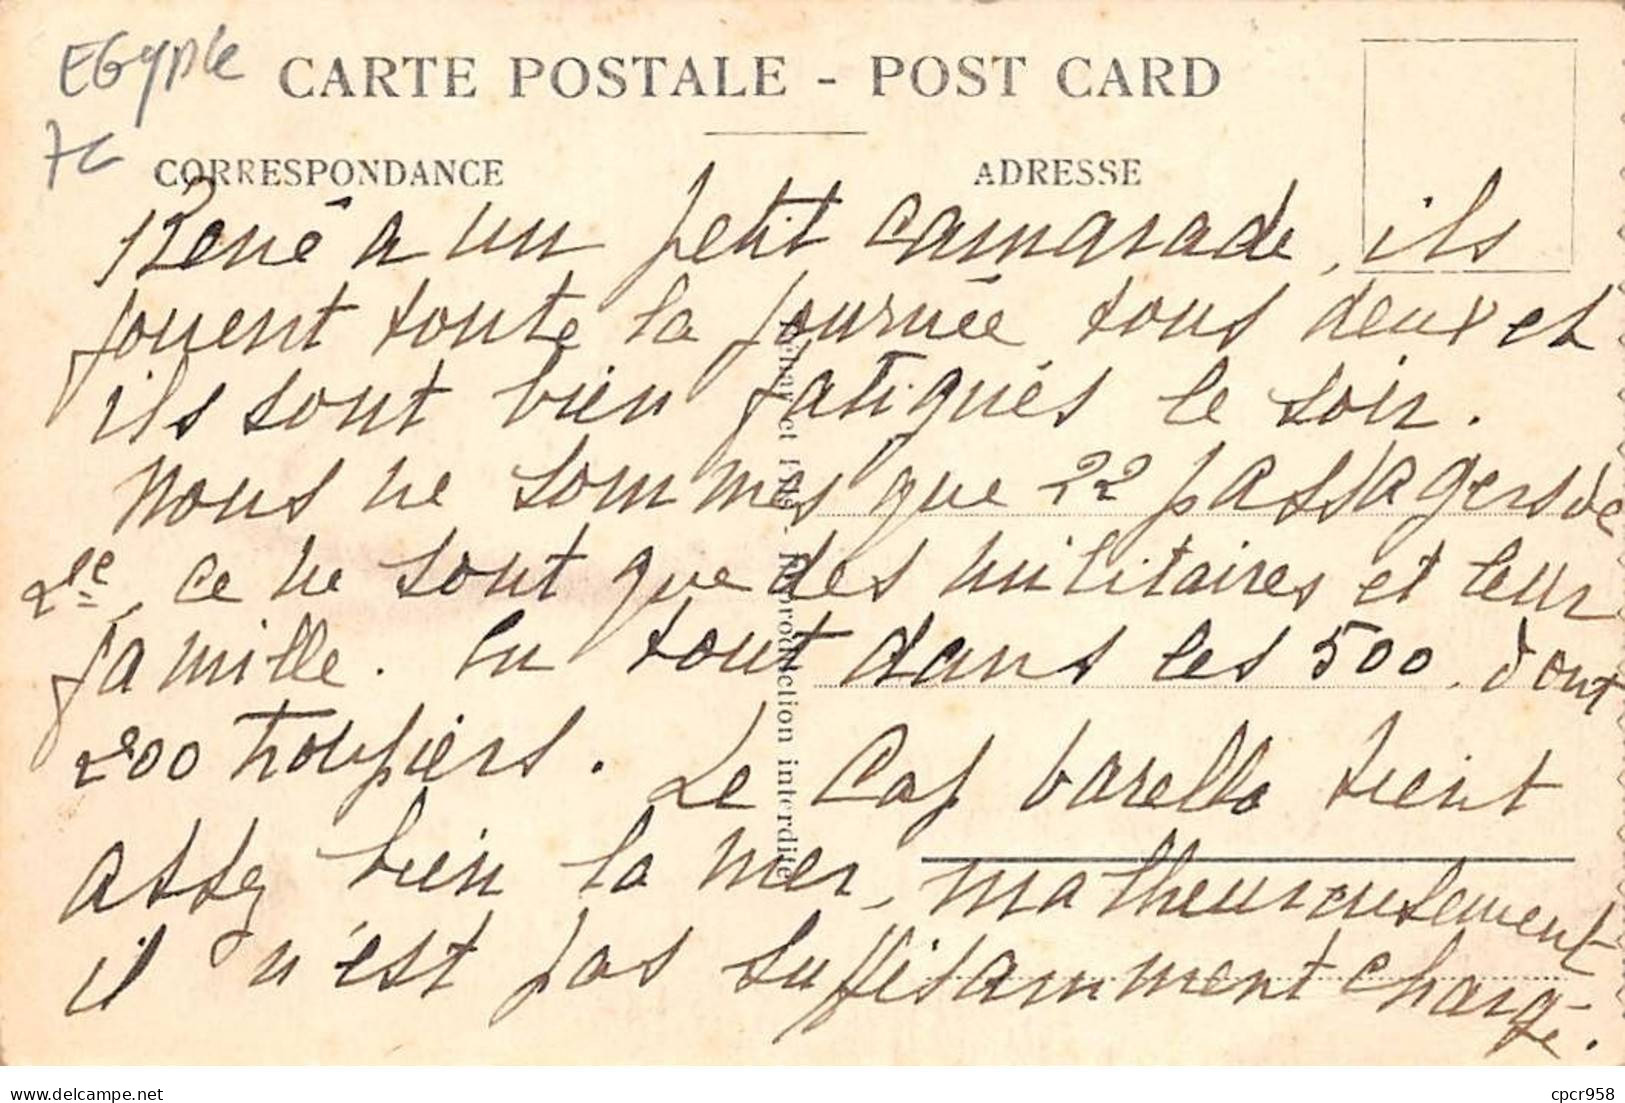 EGypte
CARTE POSTALE - POST CARD
7c
CORRESPONDANCE ADRESSE
René a un petit camarade, ils
jouent toute la journée tous deux et
ils sont bien fatigués le soir.
Nous ne sommes que 22 passagers de
2ee, ce ne sont que des militaires et leur
famille. En tout dans les 500, dont
200 troupiers. Le Cap Varella tient
assez bien la mer, malheureusement
il n'est pas suffisamment charg-
é.
et Fils - Reproduction interdite
www.delcampe.net
cpcr958